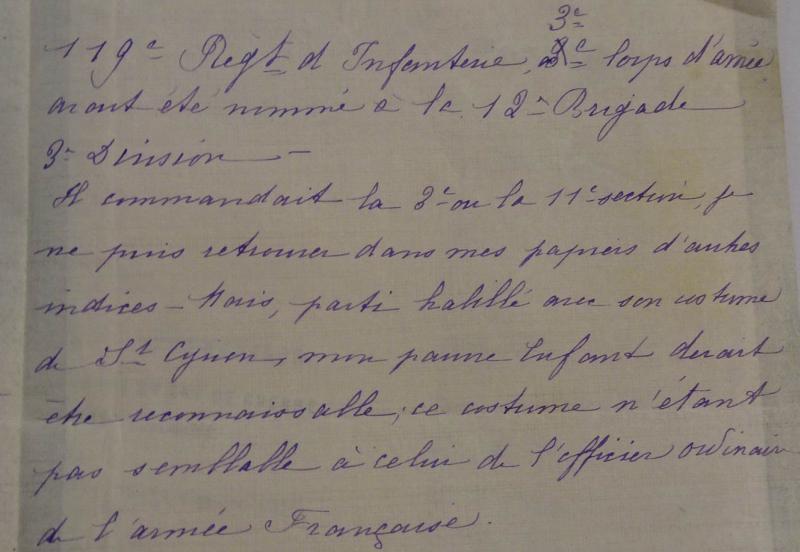 3e
119e Règt d'Infanterie, 2e Corps d'armée
avait été nommé à la 12e Brigade
3e Division —
Il commandait la 3e ou la 11e section, je
ne puis retrouver dans mes papiers d'autres
indices – Mais, parti habillé avec son costume
de St Cyrien, mon pauvre Enfant devait
être reconnaissable ; ce costume n'étant
pas semblable à celui de l'officier ordinaire
de l'armée Française.